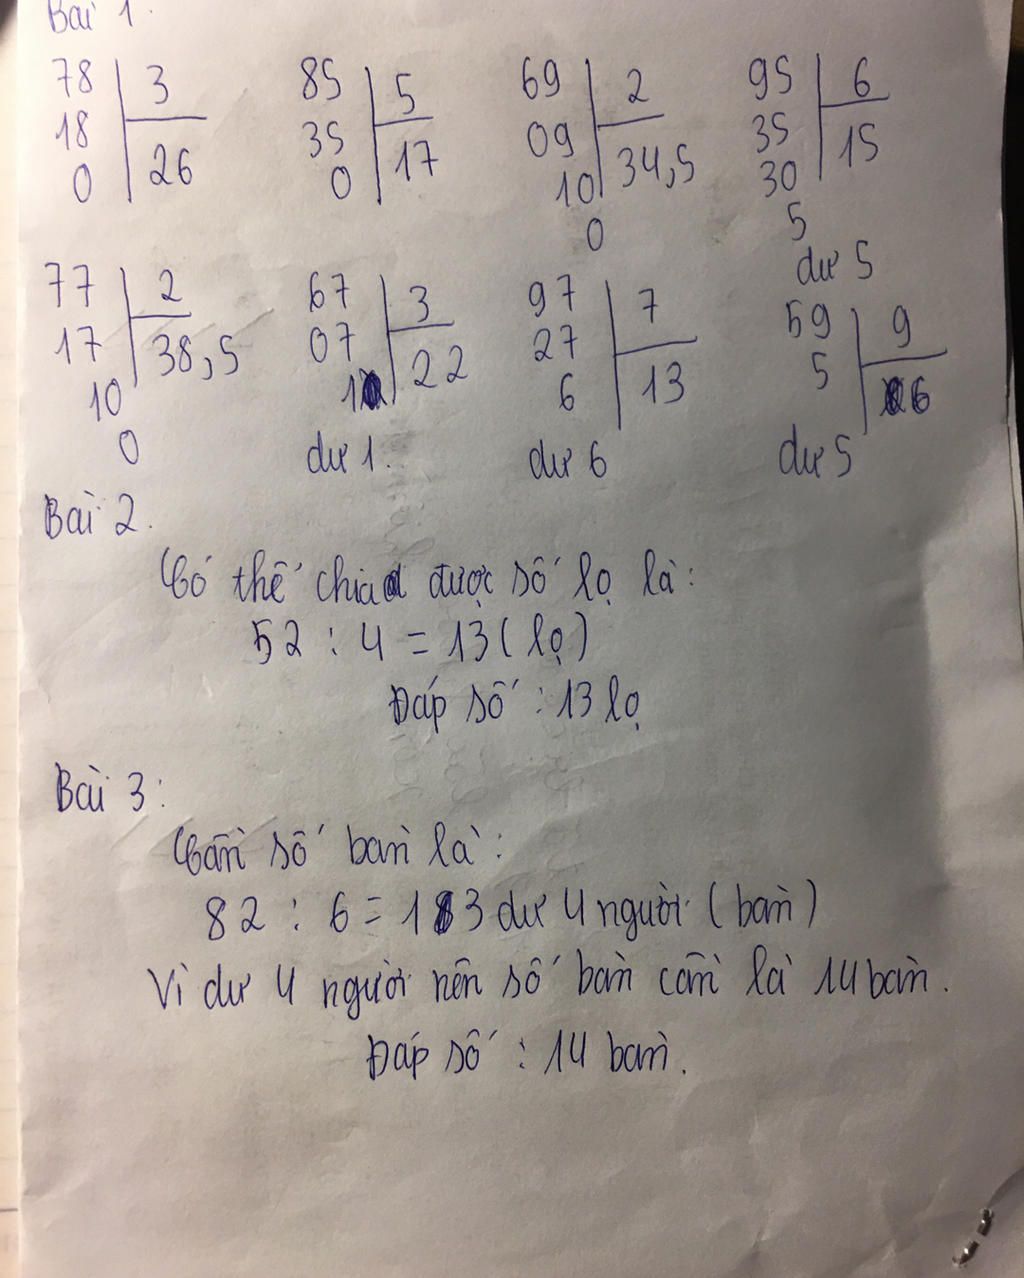 Bài 1
78 3 85 5 69 2 95 6
18 26 35 17 09 34,5 35 15
0 0 10 30
0 5
dư 5
77 2 67 3 97 7 59 9
17 38,5 07 22 27 13 5 6
10 1 6
0 dư 1. dư 6 dư 5
Bài 2.
Có thể chia được số lọ là:
52 : 4 = 13 (lọ)
Đáp số : 13 lọ
Bài 3:
Cần số bàn là:
82 : 6 = 13 dư 4 người (bàn)
Vì dư 4 người nên số bàn cần là 14 bàn.
Đáp số : 14 bàn.